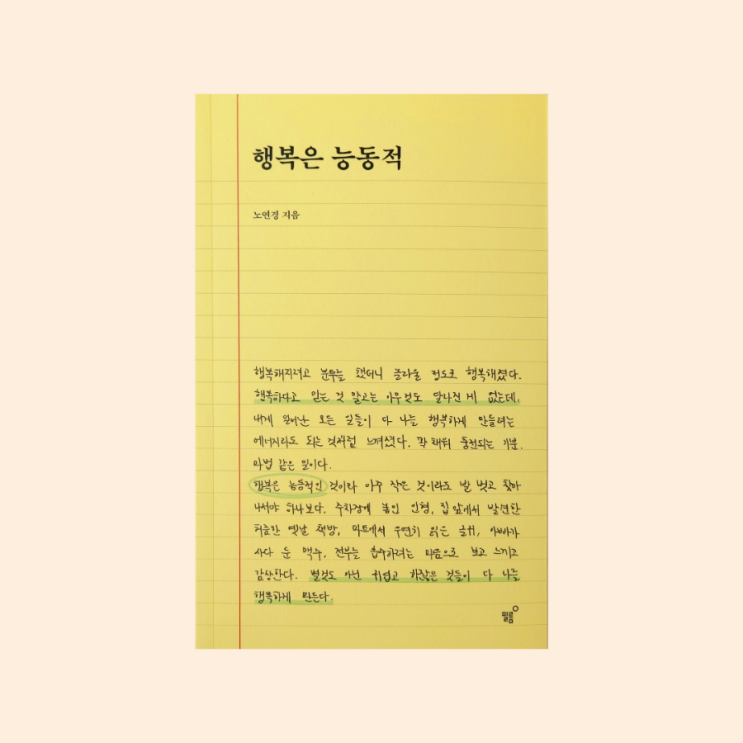 행복은 능동적
노연경 지음
행복해지려고 분투를 했더니 놀라울 정도로 행복해졌다.
행복하다고 믿는 것 말고는 아무것도 달라진 게 없는데,
내게 일어난 모든 일들이 다 나를 행복하게 만들려는
에너지라도 되는 것처럼 느껴졌다. 꽉 채워 충전되는 기분.
마법 같은 일이다.
행복은 능동적인 것이라 아주 작은 것이라도 발 벗고 찾아
나서야 하나 보다. 주차장에 놓인 인형, 집 앞에서 발견한
허름한 옛날 책방, 마트에서 우연히 읽은 글귀, 아빠가
사다 둔 맥주, 전부를 흡수하려는 마음으로 보고 느끼고
감상한다. 별것도 아닌 귀엽고 하찮은 것들이 다 나를
행복하게 만든다.
필름